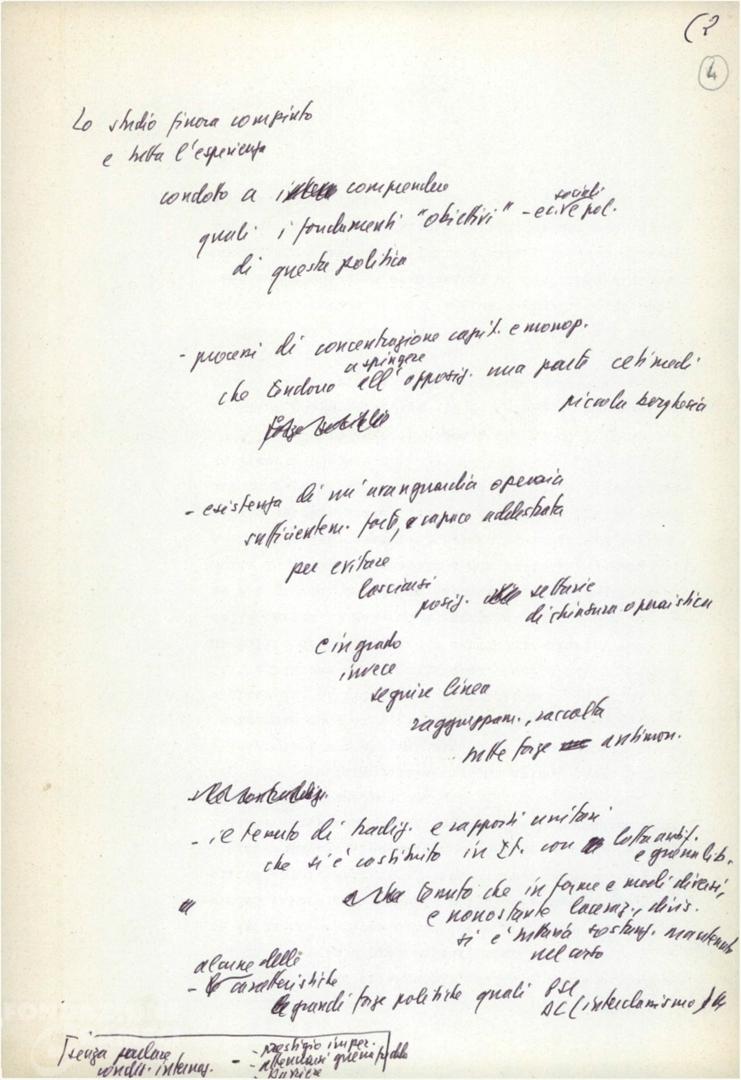 (2
4
Lo studio finora compiuto
e tutta l'esperienza
condotto a comprendere
quali i fondamenti "obiettivi" - ec. e pol.
sociali
di questa politica
- processi di concentrazione capit. e monop.
a spingere
che tendono all'opposiz. una parte ceti medi
piccola borghesia
- esistenza di un'avanguardia operaia
sufficientem. forte, capace addestrata
per evitare
lasciarsi
posiz. settarie
di chiusura operaistica
e in grado
invece
seguire linea
raggruppam., raccolta
tutte forze antimon.
tenuto di tradiz. e rapporti unitari
che si è costituito in It. con lotta antif.
e guerra lib.
tenuto che in forme e modi diversi,
e nonostante laceraz., divis.
si è tuttavia sostanz. mantenuto
nel corso
alcune delle
- caratteristiche
grandi forze politiche quali PSI
(interclassismo)
senza parlare
condiz. internaz.
- prestigio imper.